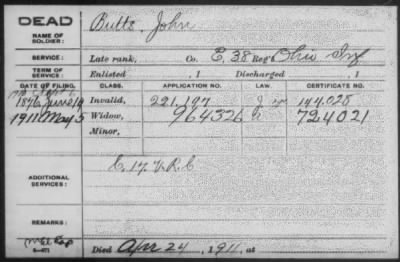 DEAD
NAME OF SOLDIER:
Butts John
SERVICE:
Late rank, Co. E, 38 Reg't Ohio Inf
TERM OF SERVICE:
Enlisted , 1 Discharged , 1
DATE OF FILING. CLASS. APPLICATION NO. LAW. CERTIFICATE NO.
1876 June 19 Invalid, 221,197 144,028
1911 May 5 Widow, 964326 724021
Minor,
ADDITIONAL SERVICES:
C. 17. V.R.C
REMARKS:
Died Apr 24 , 1911, at